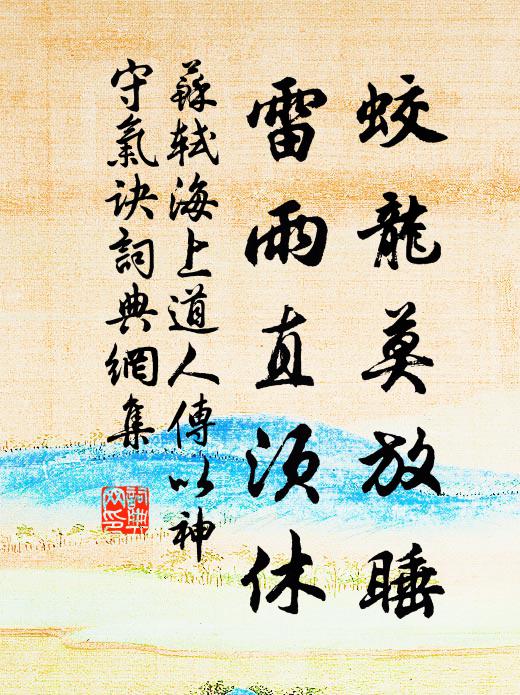 蛟龍莫放睡
雷雨直須休
蘇軾海上道人傳以神
守氣訣詞典網集
詞典
网印